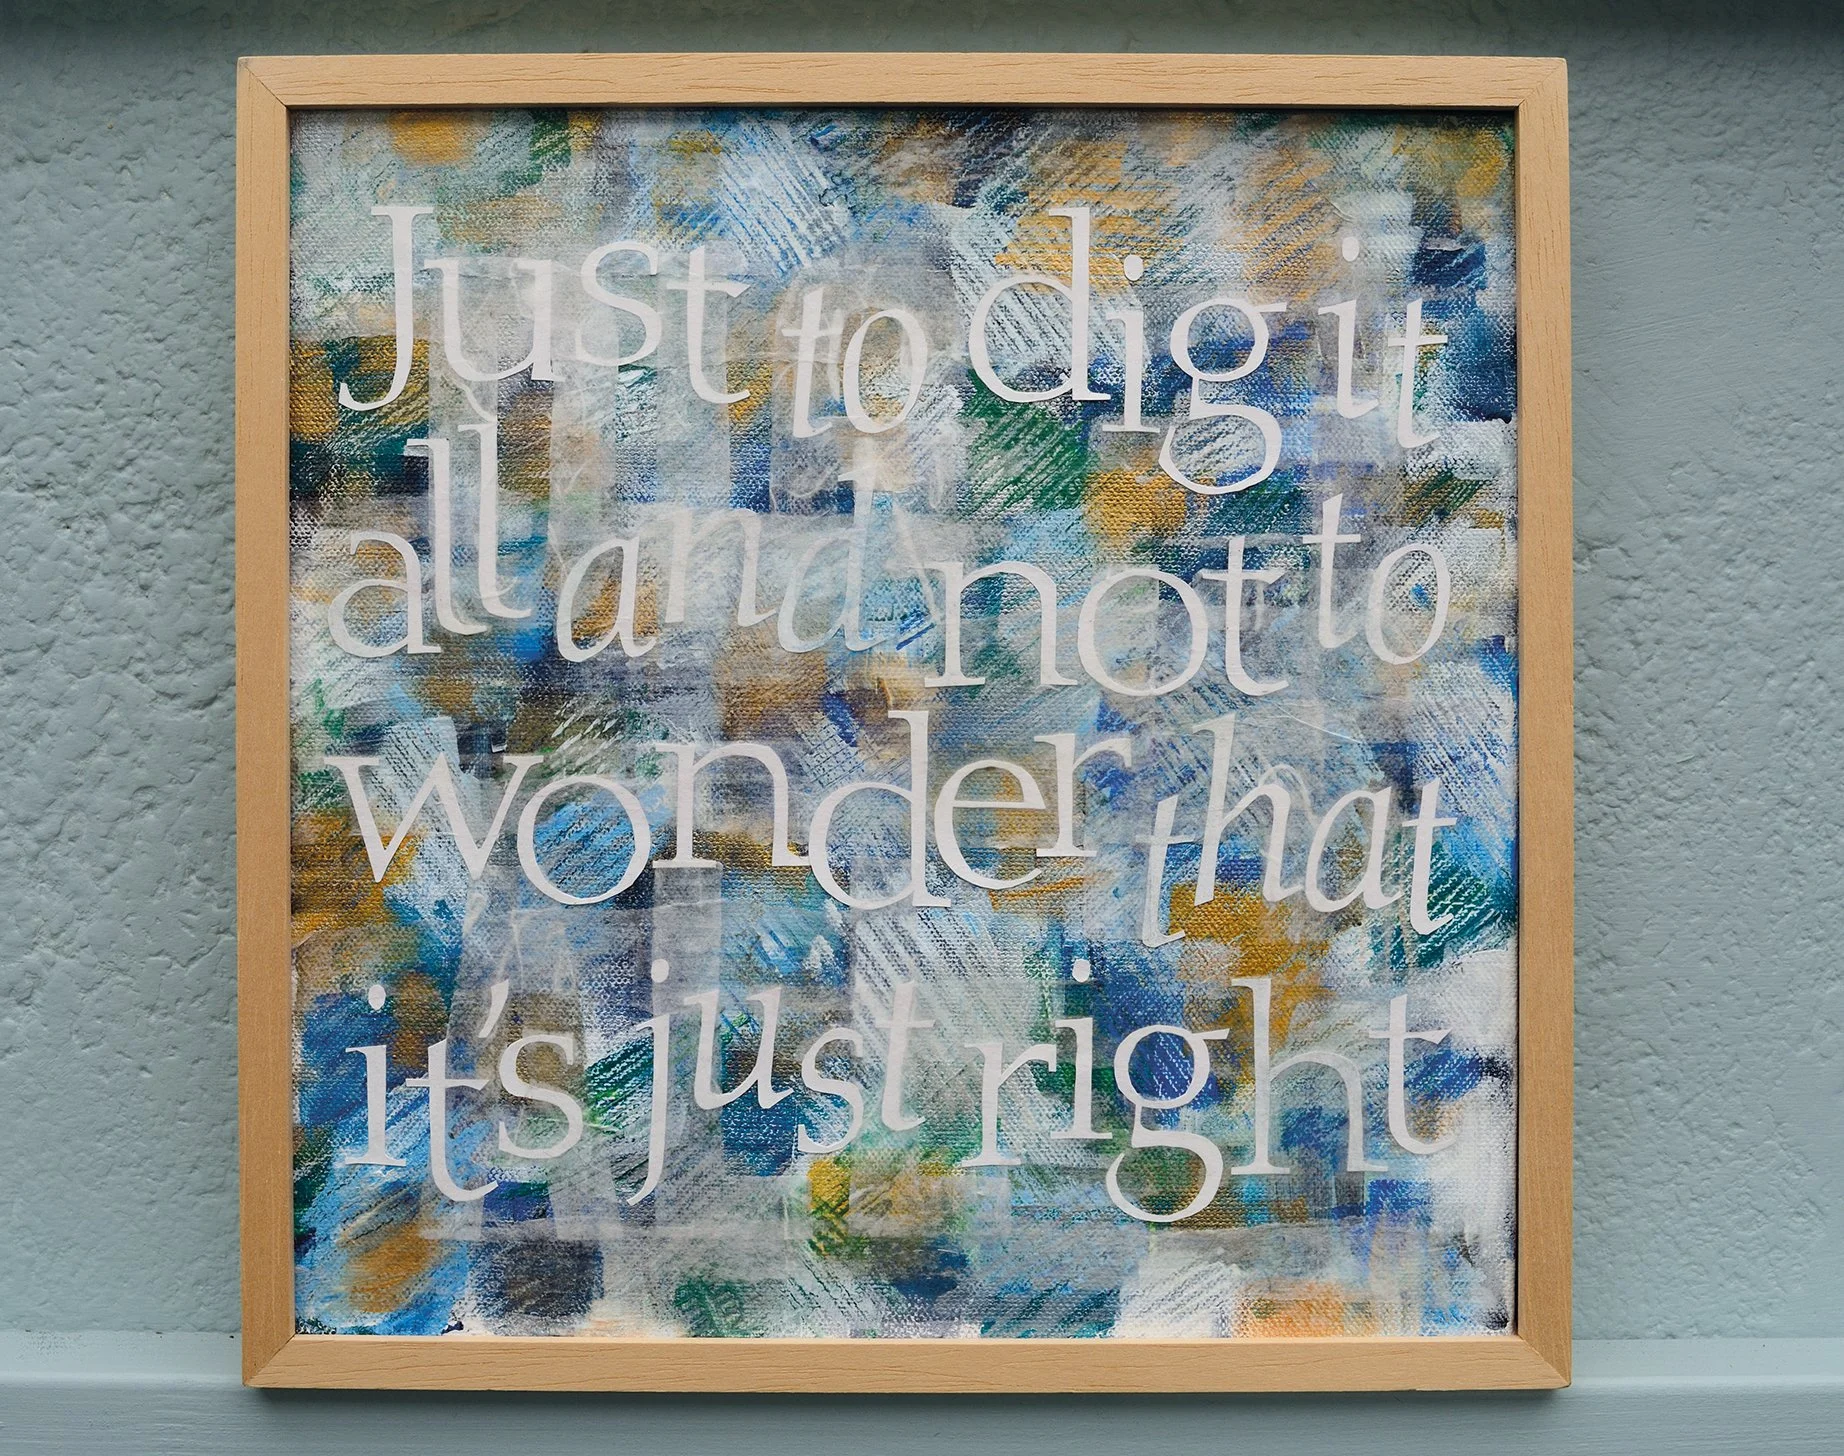 Just to dig it
all and not to
wonder that
it's just right